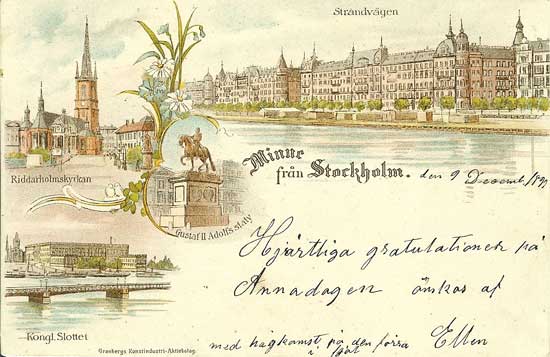 Strandvägen
Riddarholmskyrkan
Gustaf II Adolfs staty
Minne
från Stockholm.
den 9 Decemb.
Hjärtliga gratulationer på
Annadagen önskas af
Ellen
med hågkomst på den förra
i fjol
Kongl. Slottet
Granbergs Konstindustri-Aktiebolag.